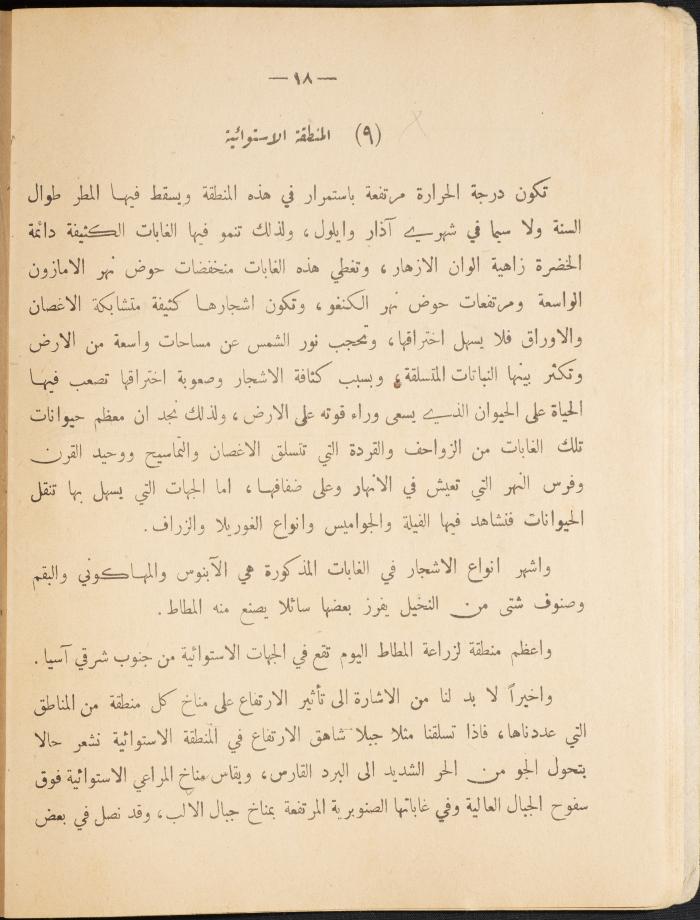 — ١٨ —
(٩) المنطقة الاستوائية
تكون درجة الحرارة مرتفعة باستمرار في هذه المنطقة ويسقط فيها المطر طوال
السنة ولا سيما في شهري آذار وايلول ، ولذلك تنمو فيها الغابات الكثيفة دائمة
الخضرة زاهية الوان الازهار ، وتغطي هذه الغابات منخفضات حوض نهر الامازون
الواسعة ومرتفعات حوض نهر الكنغو ، وتكون اشجارها كثيفة متشابكة الاغصان
والاوراق فلا يسهل اختراقها ، وتحجب نور الشمس عن مساحات واسعة من الارض
وتكثر بينها النباتات المتسلقة ، وبسبب كثافة الاشجار وصعوبة اختراقها تصعب فيها
الحياة على الحيوان الذي يسعى وراء قوته على الارض ، ولذلك نجد ان معظم حيوانات
تلك الغابات من الزواحف والقردة التي تتسلق الاغصان والتماسيح ووحيد القرن
وفرس النهر التي تعيش في الانهار وعلى ضفافها ، اما الجهات التي يسهل بها تنقل
الحيوانات فتشاهد فيها الفيلة والجواميس وانواع الغوريلا والزراف .
واشهر انواع الاشجار في الغابات المذكورة هي الآبنوس والمهاكوني والبقم
وصنوف شتى من النخيل يفرز بعضها سائلا يصنع منه المطاط .
واعظم منطقة لزراعة المطاط اليوم تقع في الجهات الاستوائية من جنوب شرقي آسيا .
واخيراً لا بد لنا من الاشارة الى تأثير الارتفاع على مناخ كل منطقة من المناطق
التي عددناها ، فاذا تسلقنا مثلا جبلا شاهق الارتفاع في المنطقة الاستوائية نشعر حالا
بتحول الجو من الحر الشديد الى البرد القارس ، ويقاس مناخ المراعي الاستوائية فوق
سفوح الجبال العالية وفي غاباتها الصنوبرية المرتفعة بمناخ جبال الالب ، وقد نصل في بعض